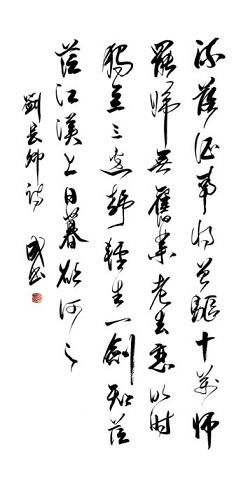 流落征南将曾驅十萬師
罷歸無舊業老去戀明时
獨立三邊静輕生一劍知茫
茫江漢上日暮欲何之
劉長卿詩